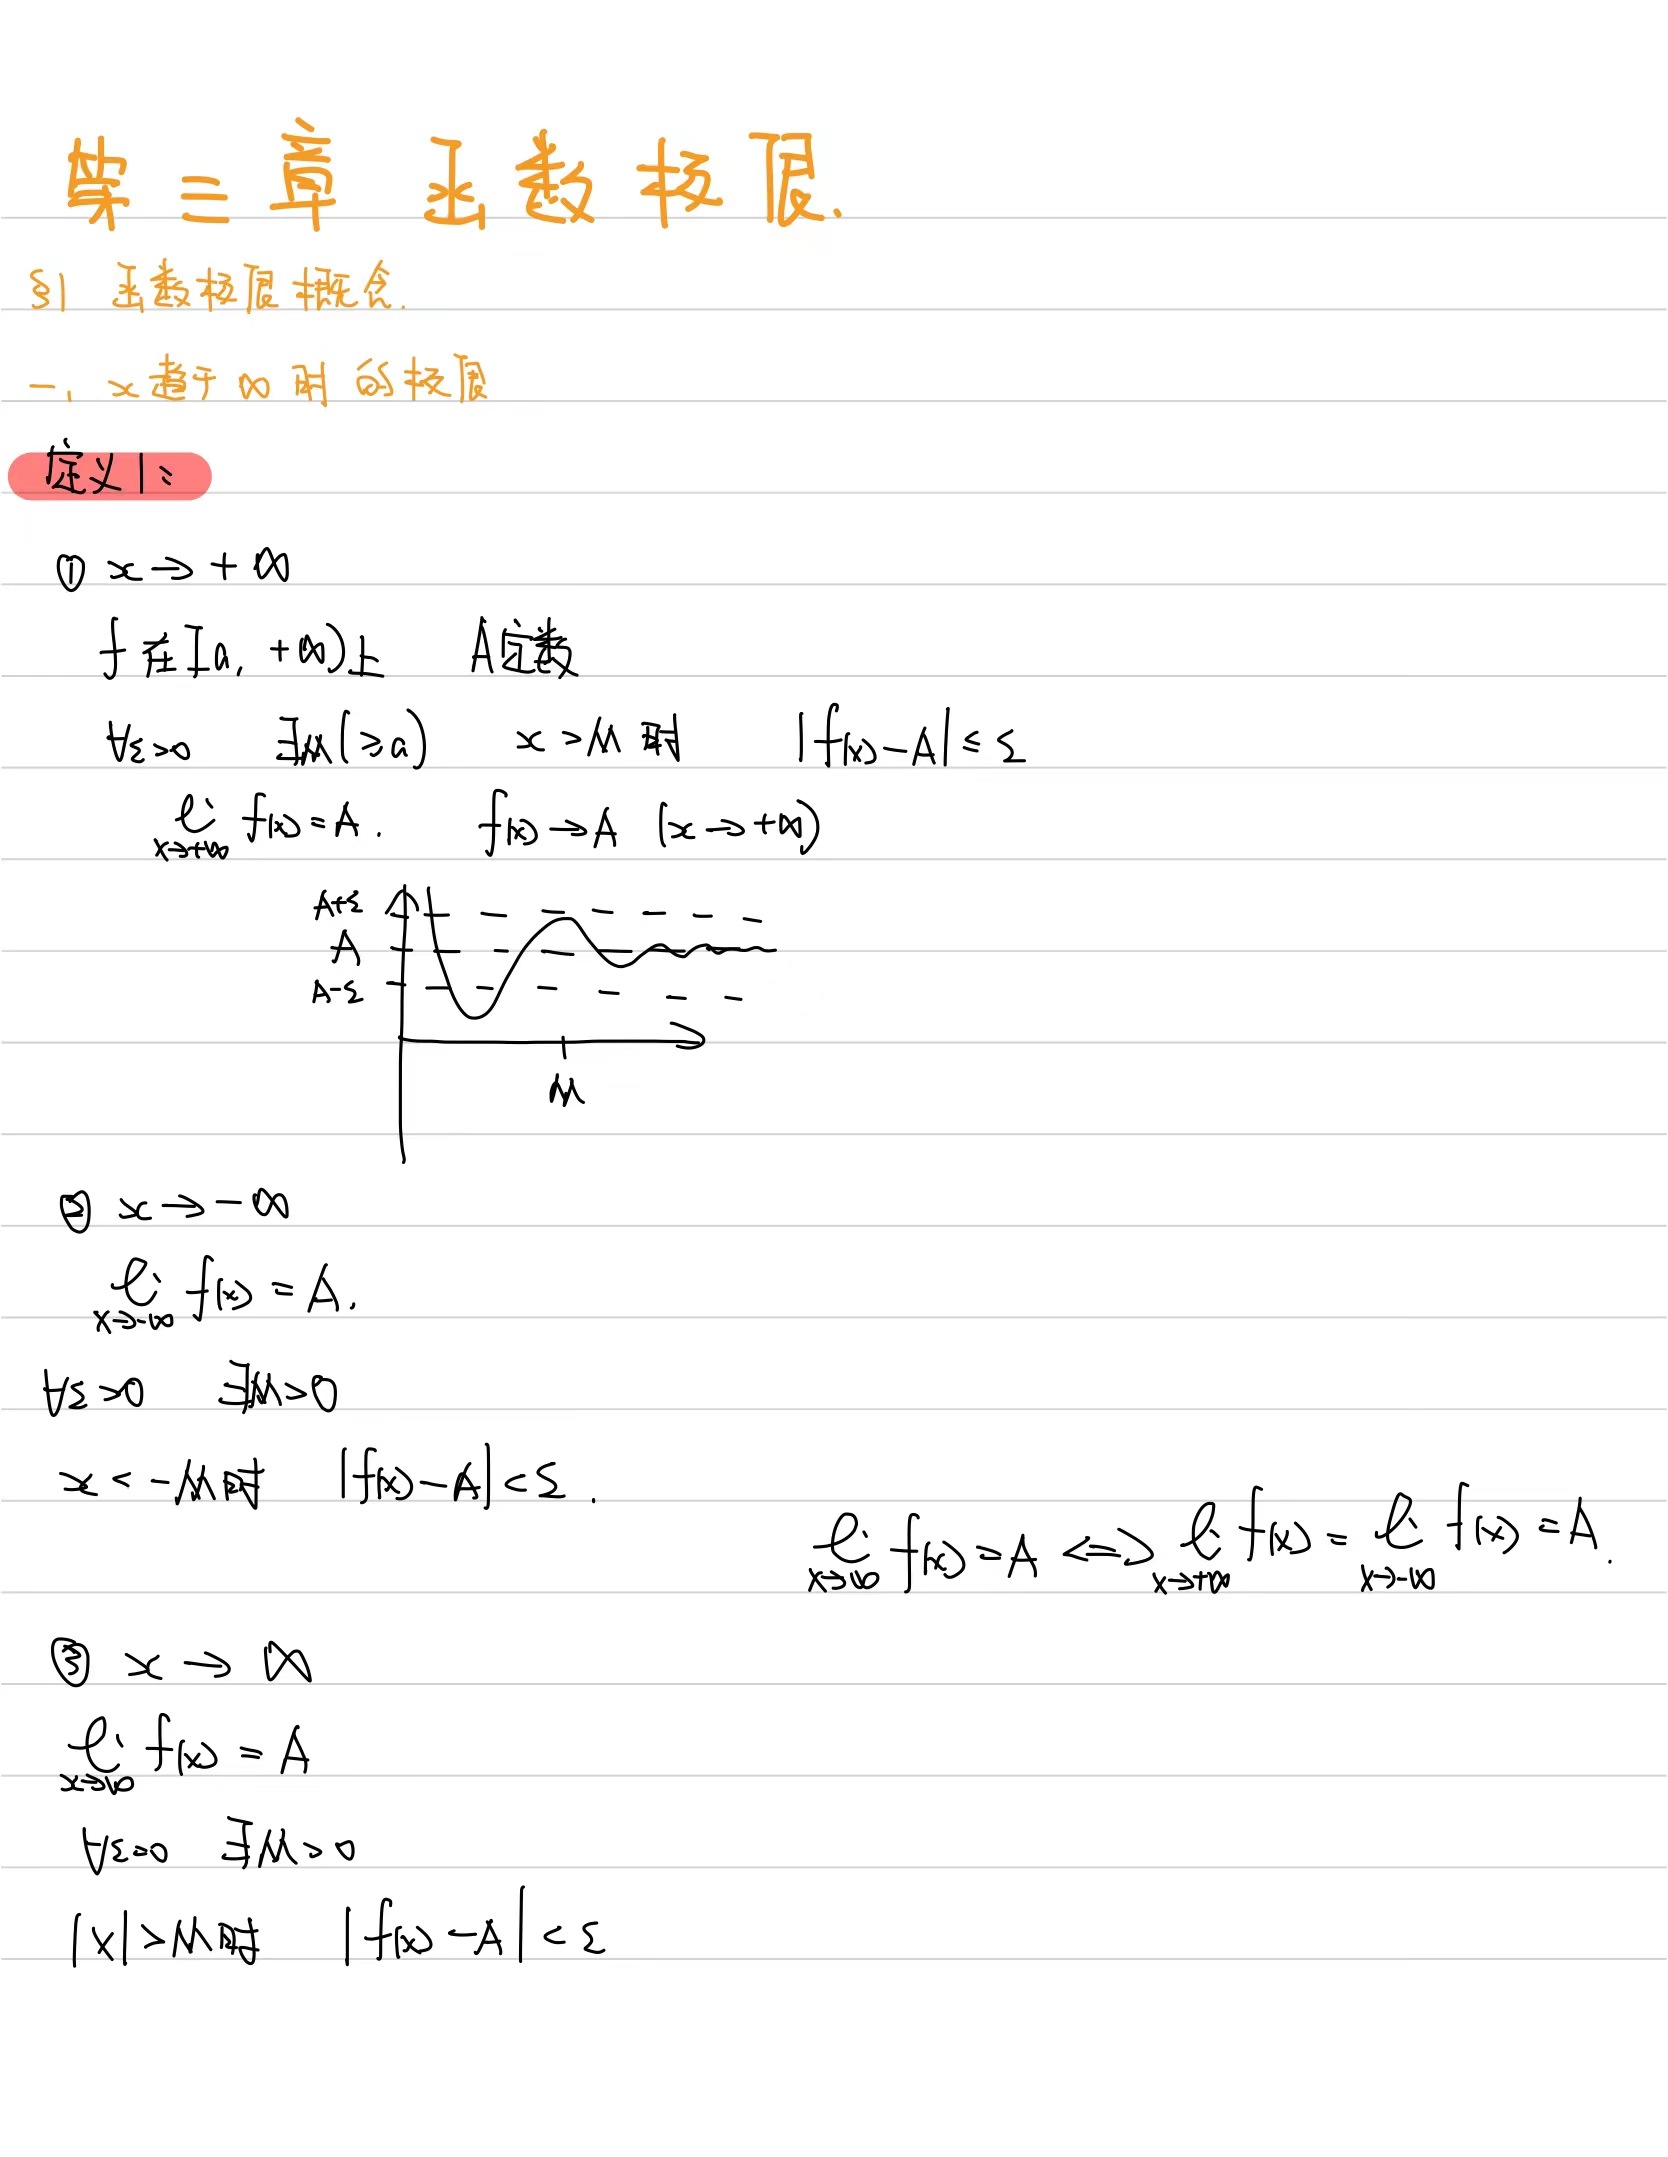 第三章 函数极限.
§1 函数极限概念.
一、x趋于∞时的极限
定义1:
① x→+∞
f在[a,+∞)上 A定数
∀ε>0 ∃M(≥a) x>M时 |f(x)-A|≤ε
lim x→+∞ f(x)=A. f(x)→A (x→+∞)
A+ε
A
A-ε
M
② x→-∞
lim x→-∞ f(x)=A.
∀ε>0 ∃M>0
x<-M时 |f(x)-A|<ε.
lim x→∞ f(x)=A <=> lim x→+∞ f(x)=lim x→-∞ f(x)=A.
③ x→∞
lim x→∞ f(x)=A
∀ε>0 ∃M>0
|x|>M时 |f(x)-A|<ε